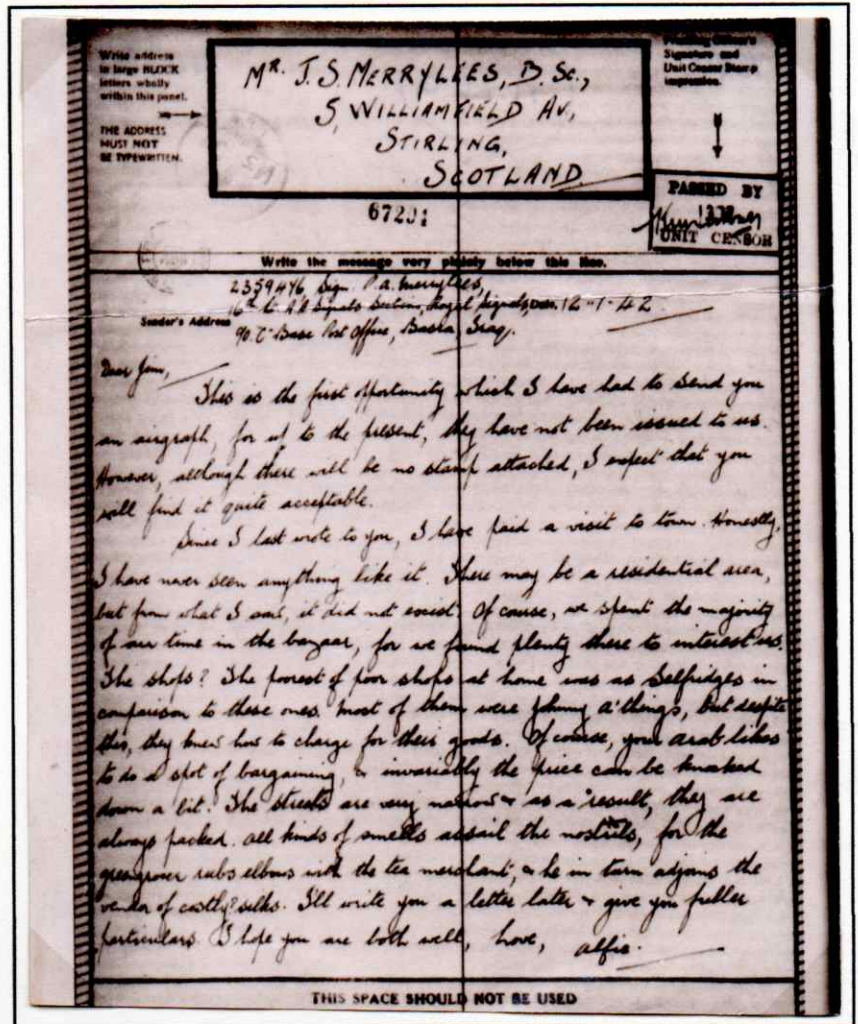 Write address
in large BLOCK
letters wholly
within this panel.
THE ADDRESS
MUST NOT
BE TYPEWRITTEN.
MR. J. S. MERRYLEES, B. Sc.,
5, WILLIAMFIELD AV,
STIRLING,
SCOTLAND
Signature and
Unit Censor Stamp
impression.
PASSED BY
UNIT CENSOR
Write the message very plainly below this line.
Sender's Address
2359476 Sign. P. A. Merrylees,
16th L. A A Signals Section, Royal Signals, Date. 12-1-42
Base Post Office, Basra, Iraq.
Dear Jim,
This is the first opportunity which I have had to send you
an airgraph, for up to the present, they have not been issued to us.
However, although there will be no stamp attached, I expect that you
will find it quite acceptable.
Since I last wrote to you, I have paid a visit to town. Honestly,
I have never seen anything like it. There may be a residential area,
but from what I saw, it did not exist. Of course, we spent the majority
of our time in the bazaar, for we found plenty there to interest us.
The shops? The poorest of poor shops at home was as Selfridges in
comparison to these ones. Most of them were Johnny a'things, but despite
this, they knew how to charge for their goods. Of course, your arab likes
to do a spot of bargaining, & invariably the price can be knocked
down a bit. The streets are very narrow & as a result, they are
always packed. All kinds of smells assail the nostrils, for the
greengrocer rubs elbows with the tea merchant, & he in turn adjoins the
vendor of costly? silks. I'll write you a letter later & give you fuller
particulars. I hope you are both well, Love, Alfie.
THIS SPACE SHOULD NOT BE USED